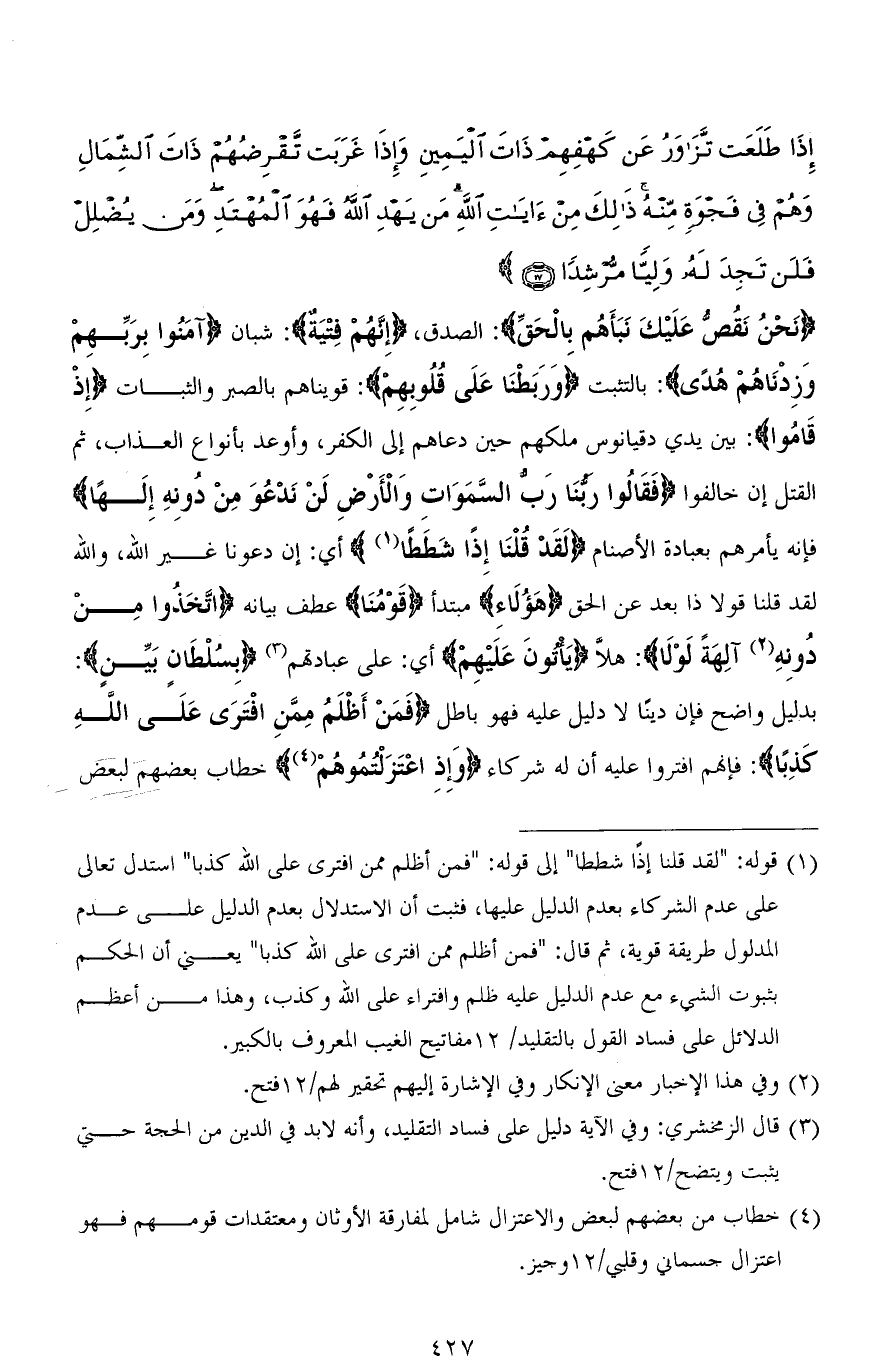 إِذَا طَلَعَت تَّزَٰوَرُ عَن كَهْفِهِمْ ذَاتَ ٱلْيَمِينِ وَإِذَا غَرَبَت تَّقْرِضُهُمْ ذَاتَ ٱلشِّمَالِ
وَهُمْ فِى فَجْوَةٍ مِّنْهُ ۚ ذَٰلِكَ مِنْ ءَايَـٰتِ ٱللَّهِ ۗ مَن يَهْدِ ٱللَّهُ فَهُوَ ٱلْمُهْتَدِ ۖ وَمَن يُضْلِلْ
فَلَن تَجِدَ لَهُۥ وَلِيًّا مُّرْشِدًا ﴿١٧﴾ ﴾
﴿نَحْنُ نَقُصُّ عَلَيْكَ نَبَأَهُم بِالْحَقِّ﴾: الصدق، ﴿إِنَّهُمْ فِتْيَةٌ﴾: شبان ﴿آمَنُوا بِرَبِّهِمْ
وَزِدْنَاهُمْ هُدًى﴾: بالتثبت ﴿وَرَبَطْنَا عَلَى قُلُوبِهِمْ﴾: قويناهم بالصبر والثبات ﴿إِذْ
قَامُوا﴾: بين يدي دقيانوس ملكهم حين دعاهم إلى الكفر، وأوعد بأنواع العذاب، ثم
القتل إن خالفوا ﴿فَقَالُوا رَبُّنَا رَبُّ السَّمَوَاتِ وَالْأَرْضِ لَنْ نَدْعُوَ مِنْ دُونِهِ إِلَهًا﴾
فإنه يأمرهم بعبادة الأصنام ﴿لَقَدْ قُلْنَا إِذًا شَطَطًا(١) ﴾ أي: إن دعونا غير الله، والله
لقد قلنا قولا ذا بعد عن الحق ﴿هَؤُلَاءِ﴾ مبتدأ ﴿قَوْمُنَا﴾ عطف بيانه ﴿اتَّخَذُوا مِنْ
دُونِهِ(٢) آلِهَةً لَوْلَا﴾: هلاَّ ﴿يَأْتُونَ عَلَيْهِمْ﴾ أي: على عبادتهم(٣) ﴿بِسُلْطَانٍ بَيِّنٍ﴾:
بدليل واضح فإن دينًا لا دليل عليه فهو باطل ﴿فَمَنْ أَظْلَمُ مِمَّنِ افْتَرَى عَلَى اللَّهِ
كَذِبًا﴾: فإنهم افتروا عليه أن له شركاء ﴿وَإِذِ اعْتَزَلْتُمُوهُمْ(٤)﴾ خطاب بعضهم لبعض
(١) قوله: "لقد قلنا إذًا شططا" إلى قوله: "فمن أظلم ممن افترى على الله كذبا" استدل تعالى
على عدم الشركاء بعدم الدليل عليها، فثبت أن الاستدلال بعدم الدليل على عدم
المدلول طريقة قوية، ثم قال: "فمن أظلم ممن افترى على الله كذبا" يعني أن الحكم
بثبوت الشيء مع عدم الدليل عليه ظلم وافتراء على الله وكذب، وهذا من أعظم
الدلائل على فساد القول بالتقليد/ ١٢مفاتيح الغيب المعروف بالكبير.
(٢) وفي هذا الإخبار معنى الإنكار وفي الإشارة إليهم تحقير لهم/١٢فتح.
(٣) قال الزمخشري: وفي الآية دليل على فساد التقليد، وأنه لابد في الدين من الحجة حتى
يثبت ويتضح/١٢فتح.
(٤) خطاب من بعضهم لبعض والاعتزال شامل لمفارقة الأوثان ومعتقدات قومهم فهو
اعتزال جسماني وقلبي/١٢وجيز.
٤٢٧